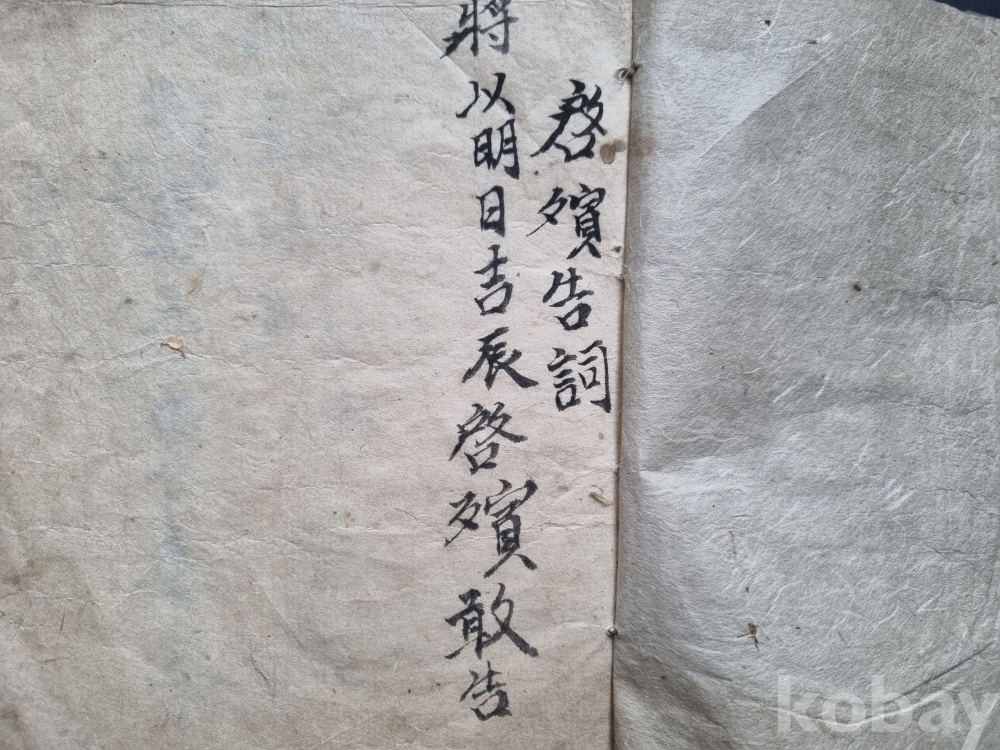 啓殯告詞
將以明日吉辰啓殯敢告
kobay